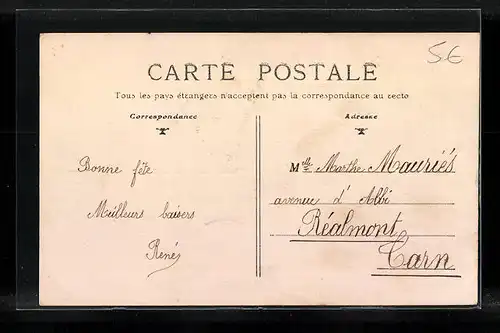 5€
CARTE POSTALE
Tous les pays étrangers n'acceptent pas la correspondance au recto
Correspondance
Adresse
Bonne fête
Meilleurs baisers
Renés
Mlle Marthe Mauriés
avenue d'Albi
Réalmont
Tarn